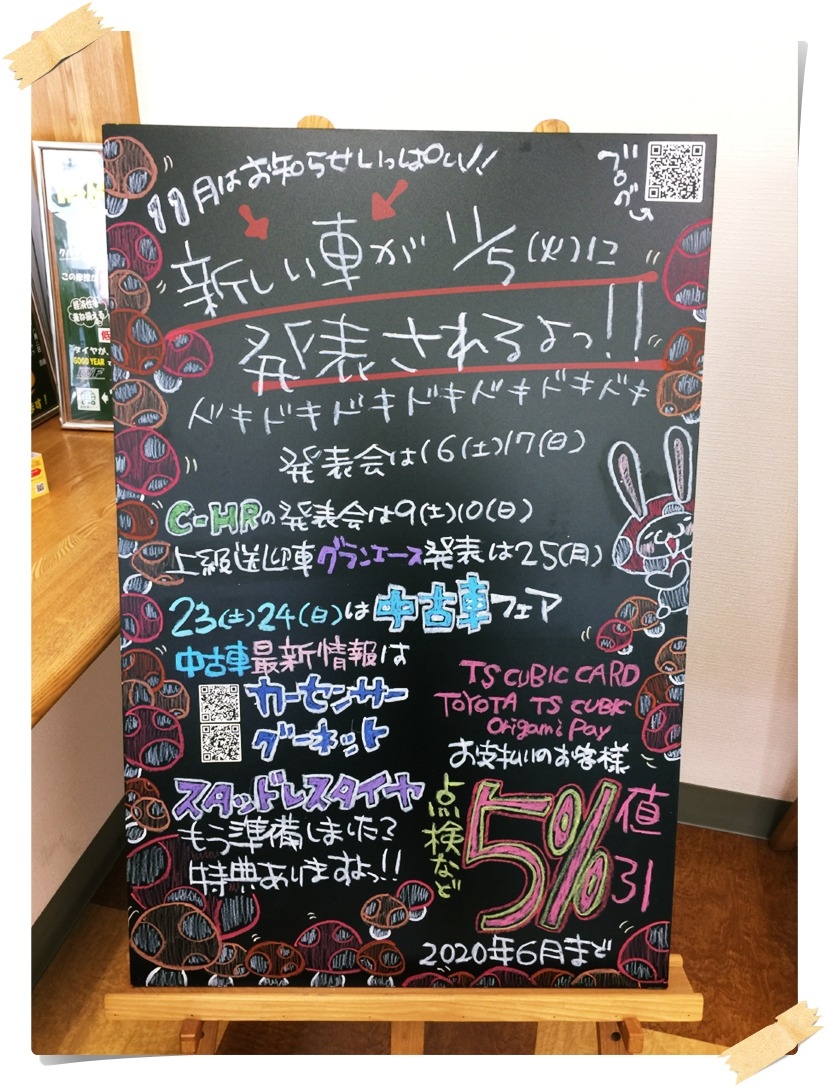 11月はお知らせいっぱい!!
ブログ
新しい車が 11/5(火)に
発表されるよっ!!
ドキドキドキドキドキドキドキ
発表会は16(土)17(日)
C-HRの発表会は9(土)10(日)
上級送迎車グランエース発表は25(月)
23(土)24(日)は中古車フェア
中古車最新情報は
カーセンサー
グーネット
TS CUBIC CARD
TOYOTA TS CUBIC
Origami Pay
お支払いのお客様
点検など
5%値引
2020年6月まで
スタッドレスタイヤ
もう準備しました?
特典ありますよっ!!
この季節が
タイヤが、
GOOD YEAR